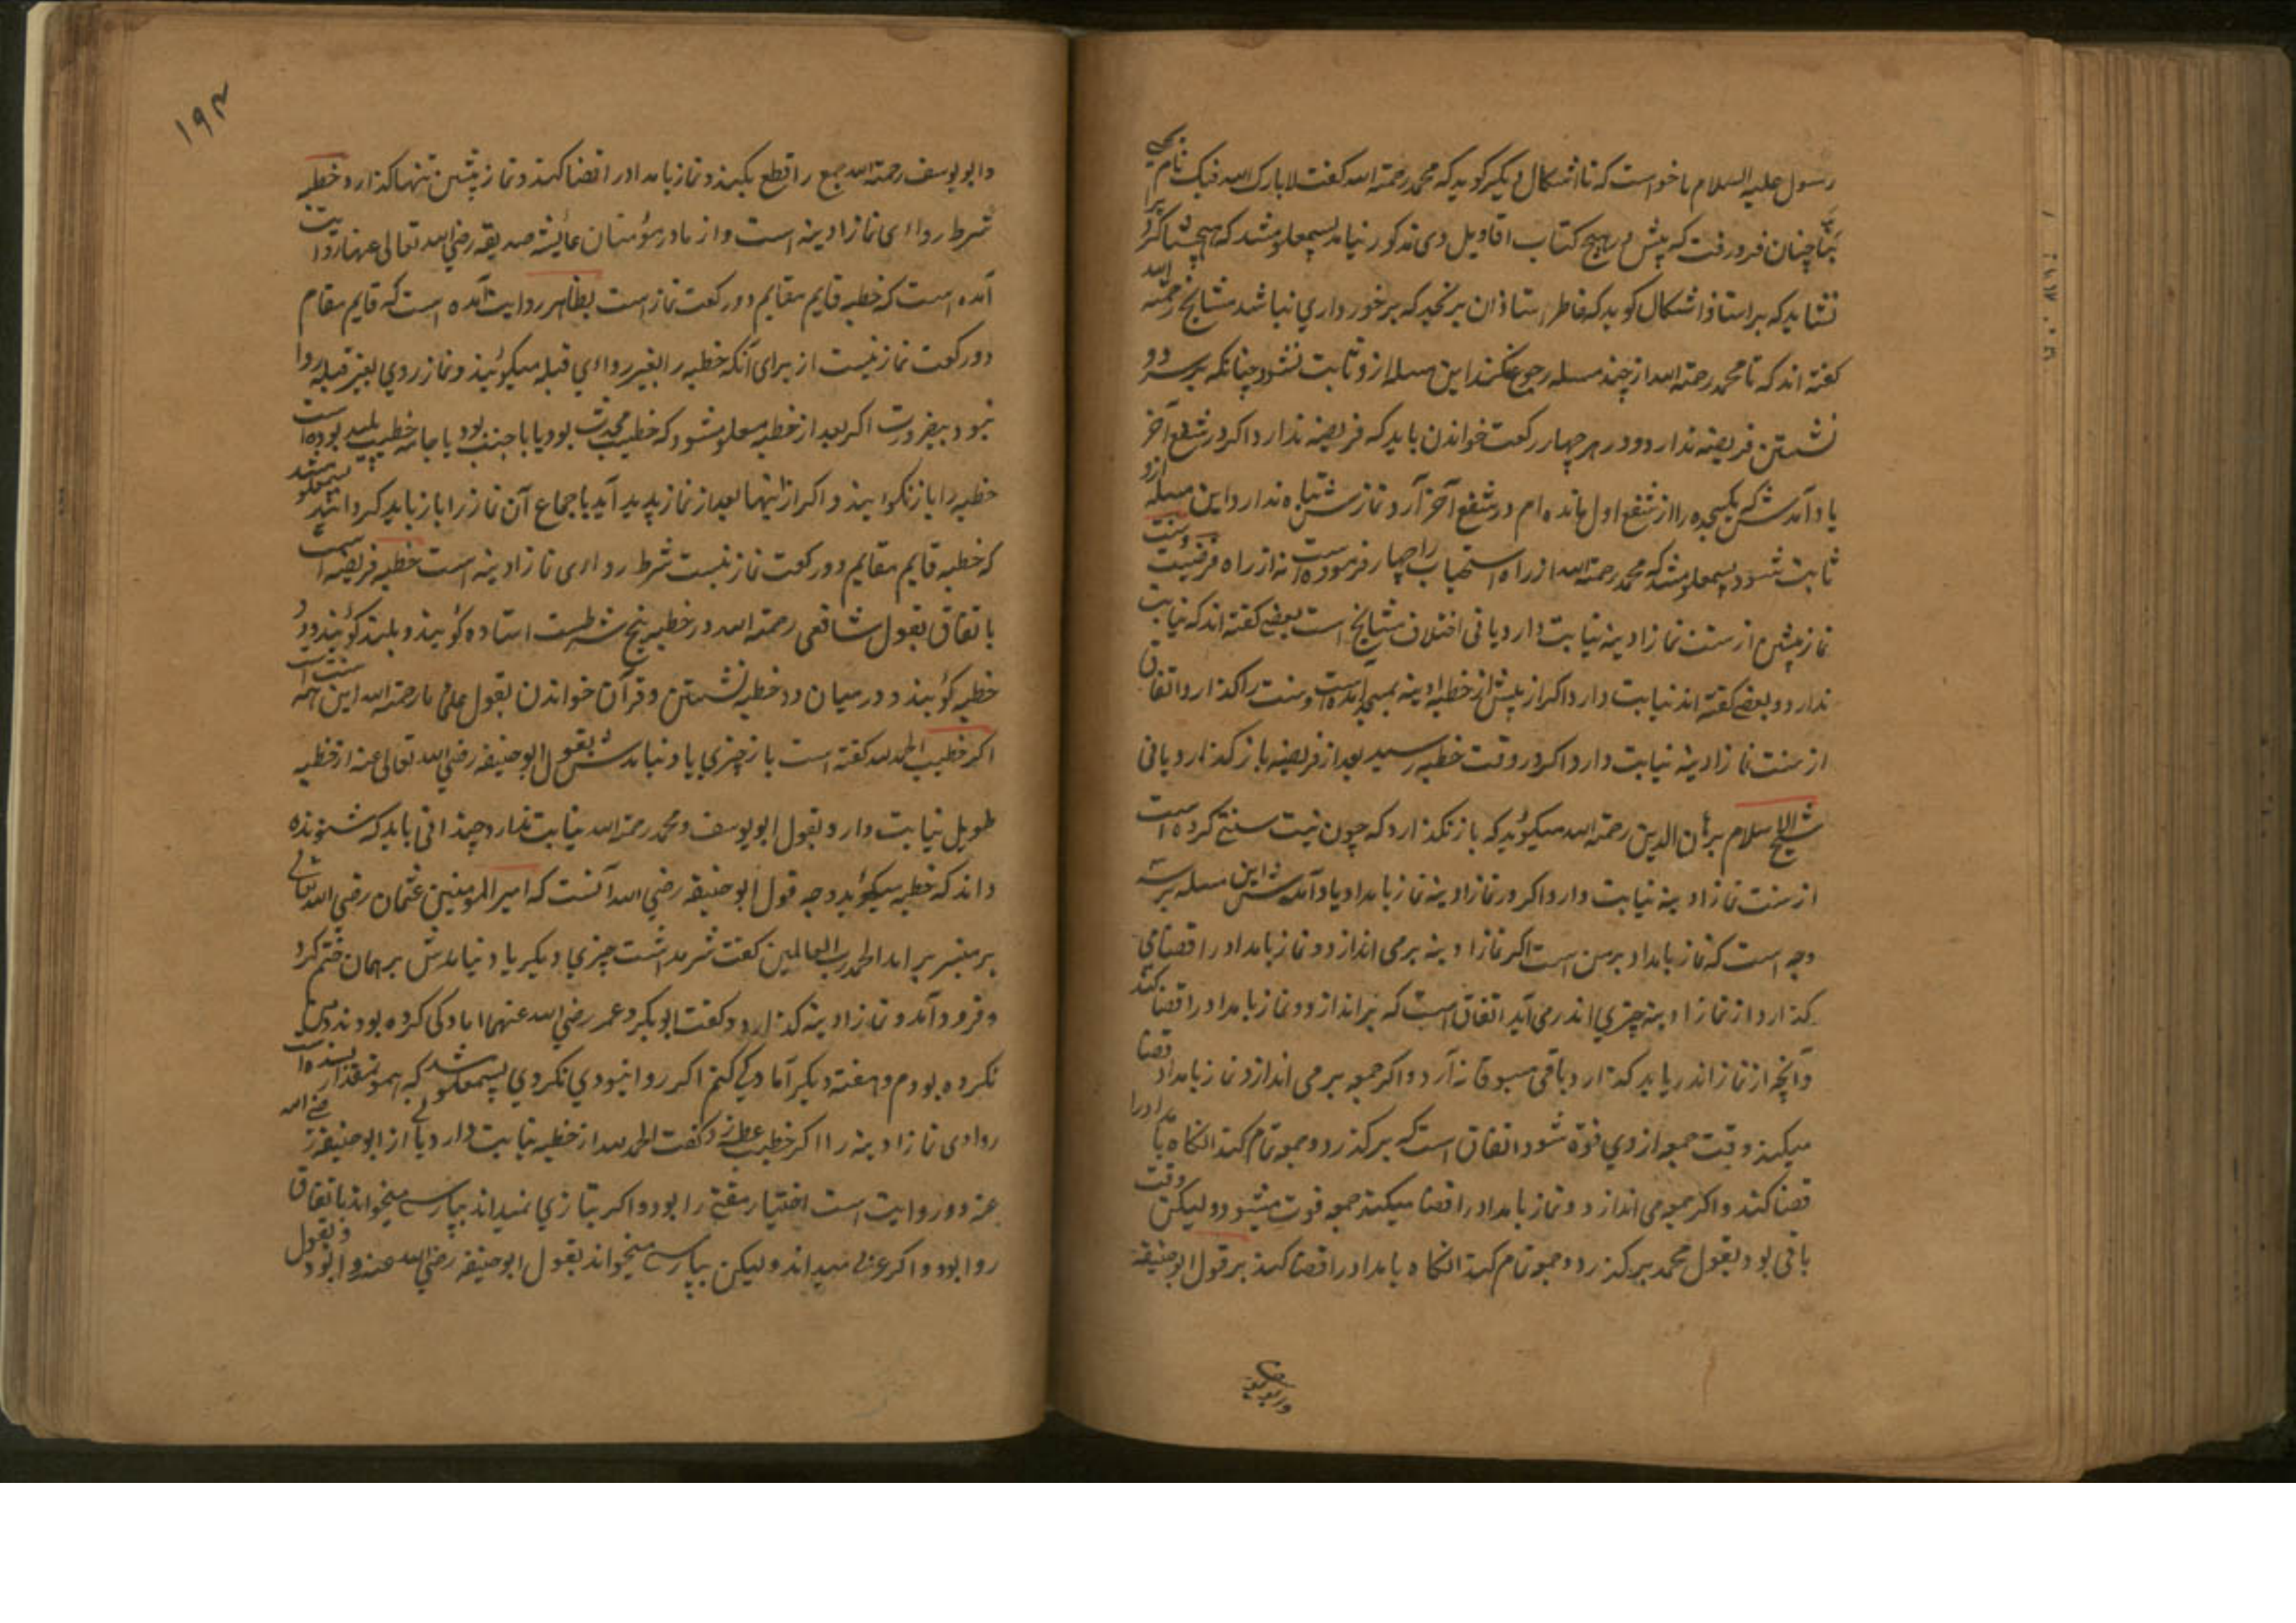 رسول علیه السلام ما خواست که تا اشکال دیگر کوید که محمد رحمة الله کفت لا بارک الله فیک نام
چنان فرو رفت که پیش در هیچ کتاب اقاویل وی مذکور نیامد پس معلوم شد که هیچ شاکرد را
نشاید که بر استاد اشکال کوید که خاطر استاذان برنجد که برخورداری نباشد مشایخ رحمة الله
کفته اند که تا محمد رحمة الله از چند مسله رجوع نکند این مسله ازو ثابت نشود چنانکه بر سر دو
نشستن فریضه ندارد و در هر چهار رکعت خواندن باید که فریضه ندارد اکر در شفع آخر
یاد آمدش که یکسجده را از شفع اول مانده ام در شفع آخر آرد نمازش تباه ندارد این مسله ازو
ثابت شود پس معلوم شد که محمد رحمة الله از راه استحباب را چهار فرموده است نه از راه فرضیت
نماز پیشین از سنت نماز ادینه نیابت دارد یا نی اختلاف مشایخ است بعضی کفته اند که نیابت
ندارد و بعضی کفته اند نیابت دارد اکر از پیش از خطبه ادینه بمسجد آمده است و سنت را کذارد اتفاق
از سنت نماز ادینه نیابت دارد اکر در وقت خطبه رسید بعد از فریضه باز کذارد یا نی
شیخ الاسلام برهان الدین رحمة الله میکوید که باز نکذارد که چون نیت سنتی کرده است
از سنت نماز ادینه نیابت دارد اکر در نماز ادینه نماز بامداد یاد آمدش این مسله بر سه
وجه است که نماز بامداد بر من است اکر نماز ادینه بر می اندازد و نماز بامداد را قضا می
کذارد از نماز ادینه چیزی اندر می آید اتفاق است که بر اندازد و نماز بامداد را قضا کند
و آنچه از نماز اندر یابد کذارد باقی مسبوقانه آرد و اکر جمعه بر می اندازد نماز بامداد قضا
میکند وقت جمعه از وی فوت شود اتفاق است که بر کذرد و جمعه تمام کند انکاه بامداد را
قضا کند و اکر جمعه می اندازد و نماز بامداد را قضا میکند جمعه فوت میشود و لیکن وقت
باقی بود بقول محمد بر کذرد و جمعه تمام کند انکاه بامداد را قضا کند بر قول ابوحنیفه
۱۹۴
و ابو یوسف رحمة الله جمع را قطع بکند و نماز بامداد را قضا کند و نماز پیشین تنها کذارد خطبه
شرط روایی نماز ادینه است و از مادر مؤمنان عایشه صدیقه رضی الله تعالی عنها روایت
آمده است که خطبه قایم مقایم دو رکعت نماز است بظاهر روایت آمده است که قایم مقام
دو رکعت نماز نیست از برای آنکه خطبه را بغیر روای قبله میکویند و نماز روی بغیر قبله روا
نبود بضرورت اکر بعد از خطبه معلوم شود که خطیب محدث بود یا با جنب بود یا جامه خطیب پلید بوده است
خطبه را باز نکوایند و اکر از اینها بعد از نماز پدید آید باجماع آن نماز را باز باید کردانید پس معلوم شد
که خطبه قایم مقایم دو رکعت نماز نیست شرط روایی نماز ادینه است خطبه فریضه است
باتفاق بقول شافعی رحمة الله در خطبه پنج شرطست استاده کویند و بلند کویند و دو
خطبه کویند و در میان دو خطبه نشستن و قرآن خواندن بقول علمای ما رحمة الله این همه سنت است
اکر خطیب الحمدلله کفته است باز چیزی یاد نیامدش بقول ابوحنیفه رضی الله تعالی عنه از خطبه
طویل نیابت دارد و بقول ابو یوسف و محمد رحمة الله نیابت ندارد چندانی باید که شنونده
داند که خطبه میکوید وجه قول ابوحنیفه رضی الله آنست که امیر المومنین عثمان رضی الله تعالی
بر منبر بر امد الحمد رب العالمین کفت شرمد اشت چیزی دیکر یاد نیامدش بر همان ختم کرد
و فرود آمد و نماز ادینه کذارد و کفت ابوبکر و عمر رضی الله عنهما امادکی کرده بودند و من
نکرده بودم و هفته دیکر آمادکی کنم اکر روا نبودی نکردی پس معلوم شد که همو نمقدار بسنده است
روادی نماز ادینه را اکر خطیب عطسه زد و کفت الحمدلله از خطبه نیابت دارد یا نی از ابوحنیفه رضی الله
عنه دو روایت است اختیار مفتی را بود و اکر بتازی نمیداند بپارسی میخواند باتفاق
روا بود و اکر عربی میداند و لیکن بپارسی میخواند بقول ابوحنیفه رضی الله عنه روا بود و بقول